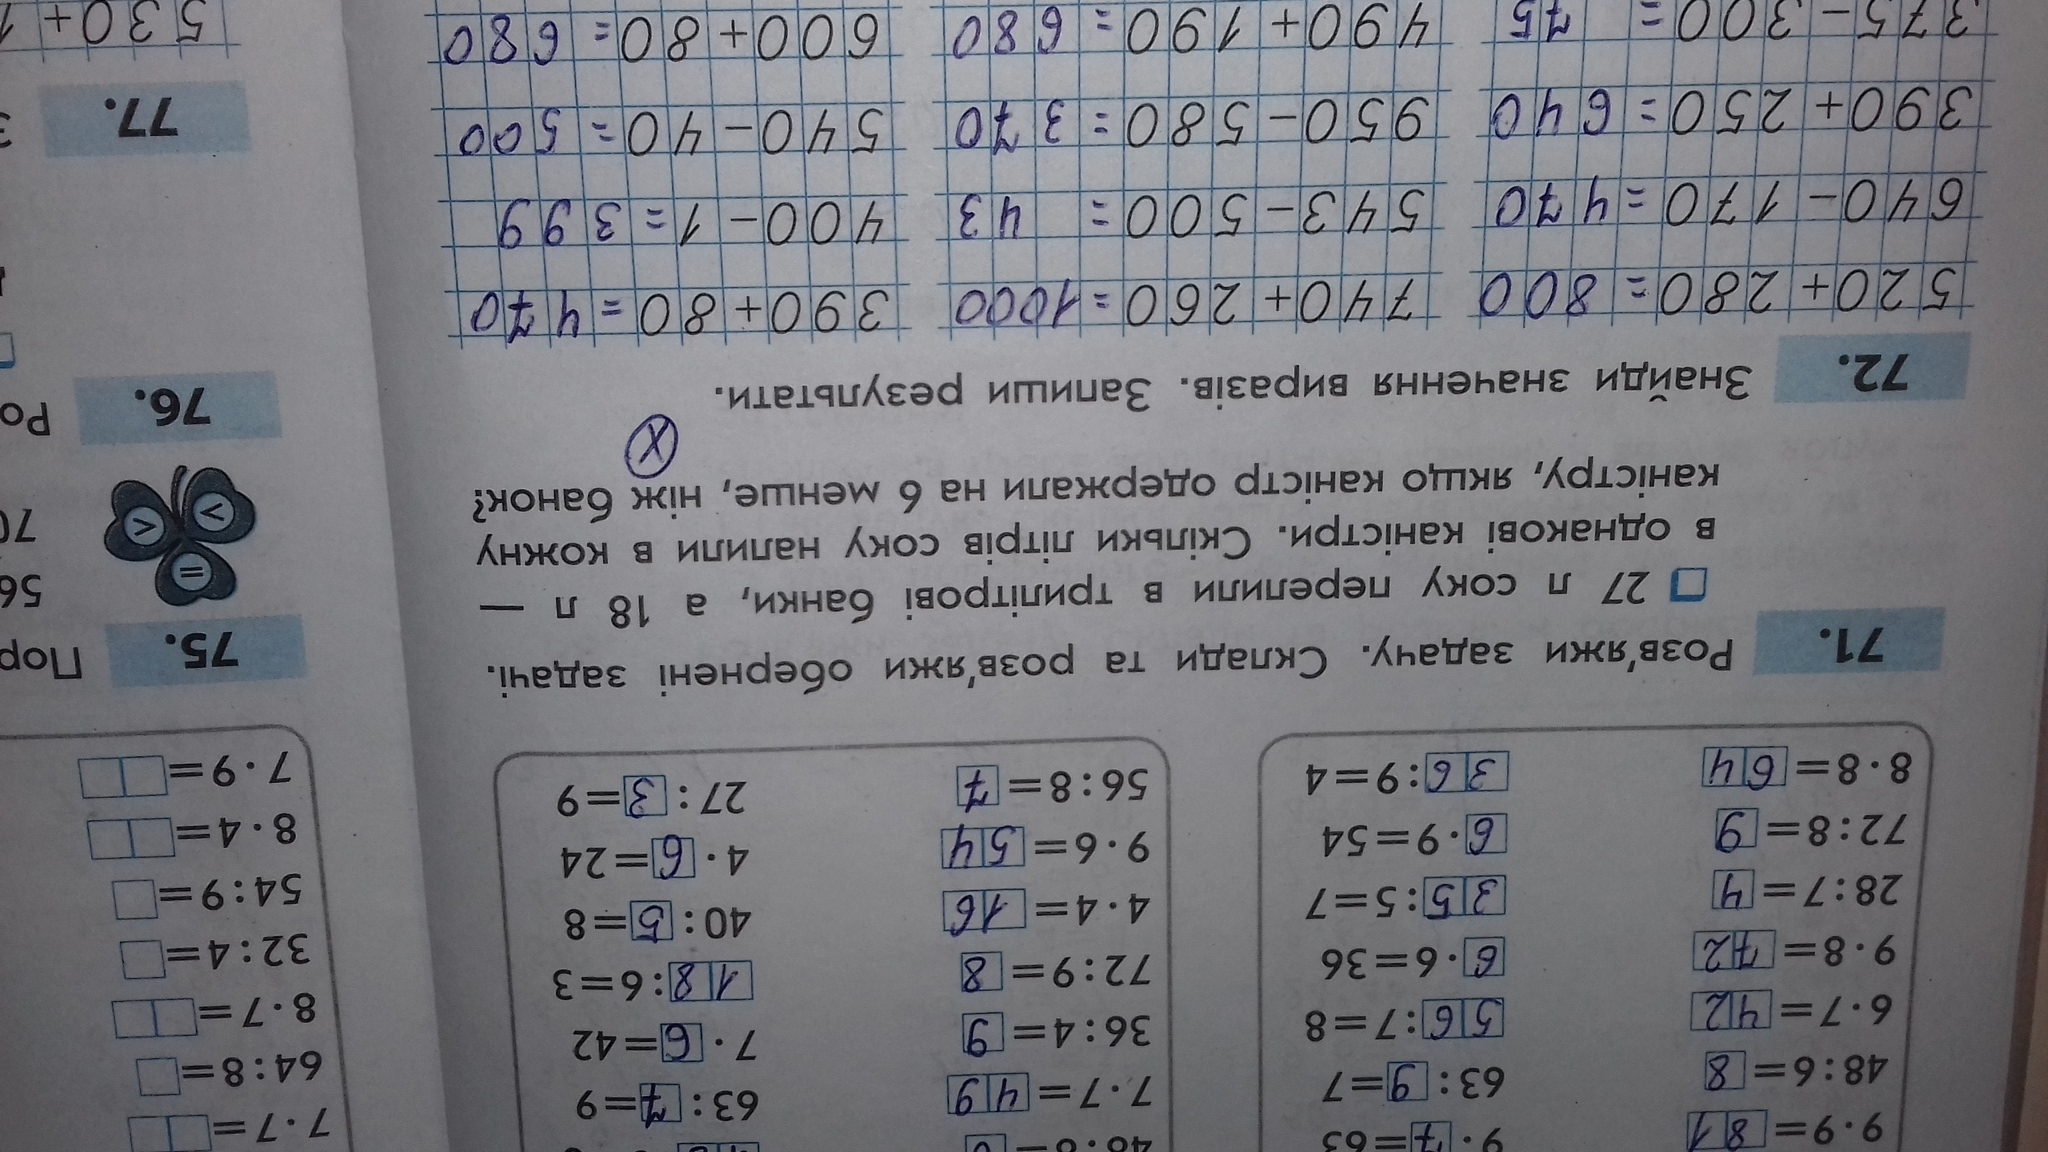 9·9=81
9·7=63
48:6=8
63:9=7
7·7=49
63:7=9
6·7=42
56:7=8
36:4=9
7·6=42
9·8=72
6·6=36
72:9=8
18:6=3
28:7=4
35:5=7
4·4=16
40:5=8
72:8=9
6·9=54
9·6=54
4·6=24
8·8=64
36:9=4
56:8=7
27:3=9
71. Розв'яжи задачу. Склади та розв'яжи обернені задачі.
27 л соку перелили в трилітрові банки, а 18 л —
в однакові каністри. Скільки літрів соку налили в кожну
каністру, якщо каністр одержали на 6 менше, ніж банок?
X
72. Знайди значення виразів. Запиши результати.
520+280=800 740+260=1000 390+80=470
640-170=470 543-500=43 400-1=399
390+250=640 950-580=370 540-40=500
375-300=75 490+190=680 600+80=680
7·7=
64:8=
8·7=
32:4=
54:9=
8·4=
7·9=
75. Пор
= > <
56
70
76. Ро
77.
530+1